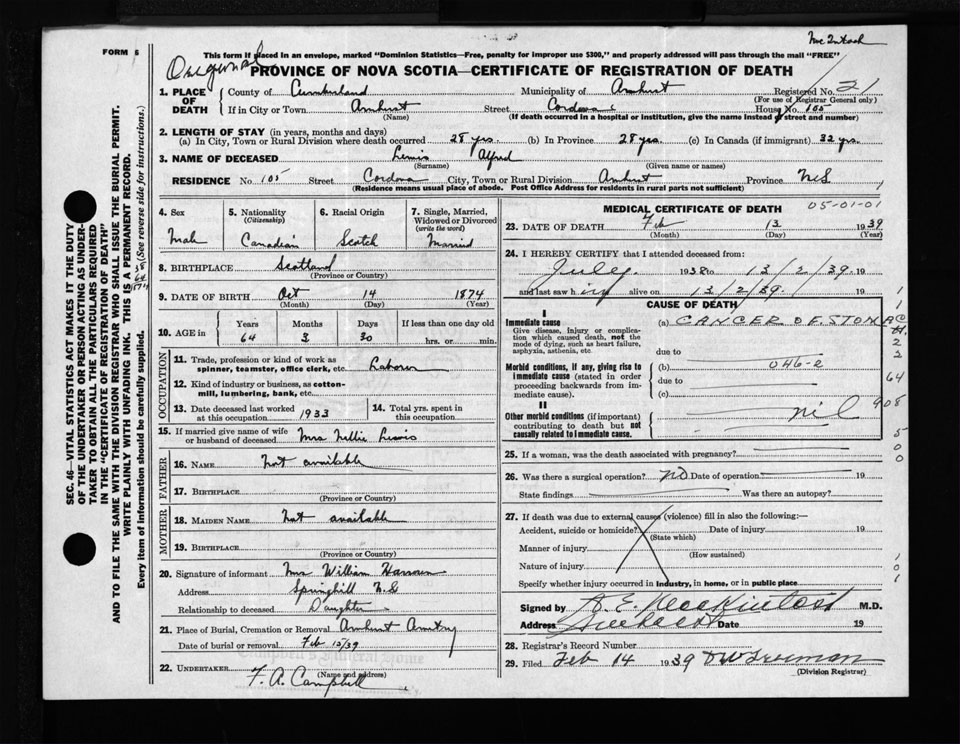 McIntosh
FORM 6
This form if placed in an envelope, marked "Dominion Statistics—Free, penalty for improper use $300," and properly addressed will pass through the mail "FREE"
Original
PROVINCE OF NOVA SCOTIA—CERTIFICATE OF REGISTRATION OF DEATH
1. PLACE OF DEATH County of Cumberland Municipality of Amherst Registered No. 21
(For use of Registrar General only)
If in City or Town Amherst Street Cordova House No. 105
(Name) (If death occurred in a hospital or institution, give the name instead of street and number)
2. LENGTH OF STAY (in years, months and days)
(a) In City, Town or Rural Division where death occurred 28 yrs. (b) In Province 28 yrs. (c) In Canada (if immigrant) 32 yrs.
3. NAME OF DECEASED Lewis Alfred
(Surname) (Given name or names)
RESIDENCE No 105 Street Cordova City, Town or Rural Division Amherst Province N.S
(Residence means usual place of abode. Post Office Address for residents in rural parts not sufficient)
4. Sex
Male
5. Nationality
(Citizenship)
Canadian
6. Racial Origin
Scotch
7. Single, Married, Widowed or Divorced
(write the word)
Married
8. BIRTHPLACE Scotland
(Province or Country)
9. DATE OF BIRTH Oct 14 1874
(Month) (Day) (Year)
10. AGE in Years Months Days If less than one day old
64 3 30 hrs. or min.
OCCUPATION
11. Trade, profession or kind of work as
spinner, teamster, office clerk, etc. Laborer
12. Kind of industry or business, as cotton-
mill, lumbering, bank, etc.
13. Date deceased last worked
at this occupation 1933
14. Total yrs. spent in
this occupation
15. If married give name of wife
or husband of deceased Mrs Nellie Lewis
FATHER
16. NAME Not available
17. BIRTHPLACE
(Province or Country)
MOTHER
18. MAIDEN NAME Not available
19. BIRTHPLACE
(Province or Country)
20. Signature of informant Mrs William
Address Springhill N.S
Relationship to deceased Daughter
21. Place of Burial, Cremation or Removal Amherst
Date of burial or removal Feb 15/39
22. UNDERTAKER F. A. Campbell
(Name and address)
MEDICAL CERTIFICATE OF DEATH 05-01-01
23. DATE OF DEATH Feb 13 1939
(Month) (Day) (Year)
24. I HEREBY CERTIFY that I attended deceased from:
July 1938 to 13/2/39. 19
and last saw him alive on 13/2/39. 19
CAUSE OF DEATH
I
Immediate cause (a) CANCER OF STOMACH.
Give disease, injury or complica-
tion which caused death, not the
mode of dying, such as heart failure,
asphyxia, asthenia, etc
due to
Morbid conditions, if any, giving rise to
immediate cause (stated in order
proceeding backwards from im-
mediate cause).
(b) 046-2
due to
(c)
II
Other morbid conditions (if important)
contributing to death but not
causally related to immediate cause.
nil
25. If a woman, was the death associated with pregnancy?
26. Was there a surgical operation? no Date of operation 19
State findings Was there an autopsy?
27. If death was due to external causes (violence) fill in also the following:—
Accident, suicide or homicide? Date of injury 19
(State which)
Manner of injury
(How sustained)
Nature of injury
Specify whether injury occurred in industry, in home, or in public place
Signed by A. E. MacKintosh M.D.
Address Amherst Date 19
28. Registrar's Record Number
29. Filed Feb 14 1939
(Division Registrar)
1
1
2
2
64
908
5
0
0
1
0
1
SEC. 46—VITAL STATISTICS ACT MAKES IT THE DUTY
OF THE UNDERTAKER OR PERSON ACTING AS UNDER-
TAKER TO OBTAIN ALL THE PARTICULARS REQUIRED
IN THE "CERTIFICATE OF REGISTRATION OF DEATH"
AND TO FILE THE SAME WITH THE DIVISION REGISTRAR WHO SHALL ISSUE THE BURIAL PERMIT.
WRITE PLAINLY WITH UNFADING INK. THIS IS A PERMANENT RECORD.
Every item of information should be carefully supplied. (See reverse side for instructions.)